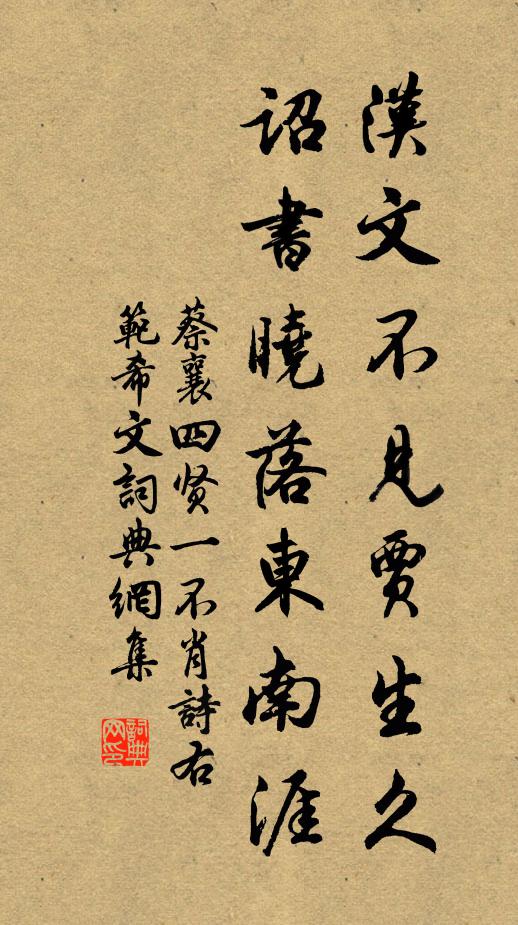 漢文不見賈生久
詔書曉落東南涯
蔡襄四贤一不肖詩右
範希文詞典網集
詞典网印